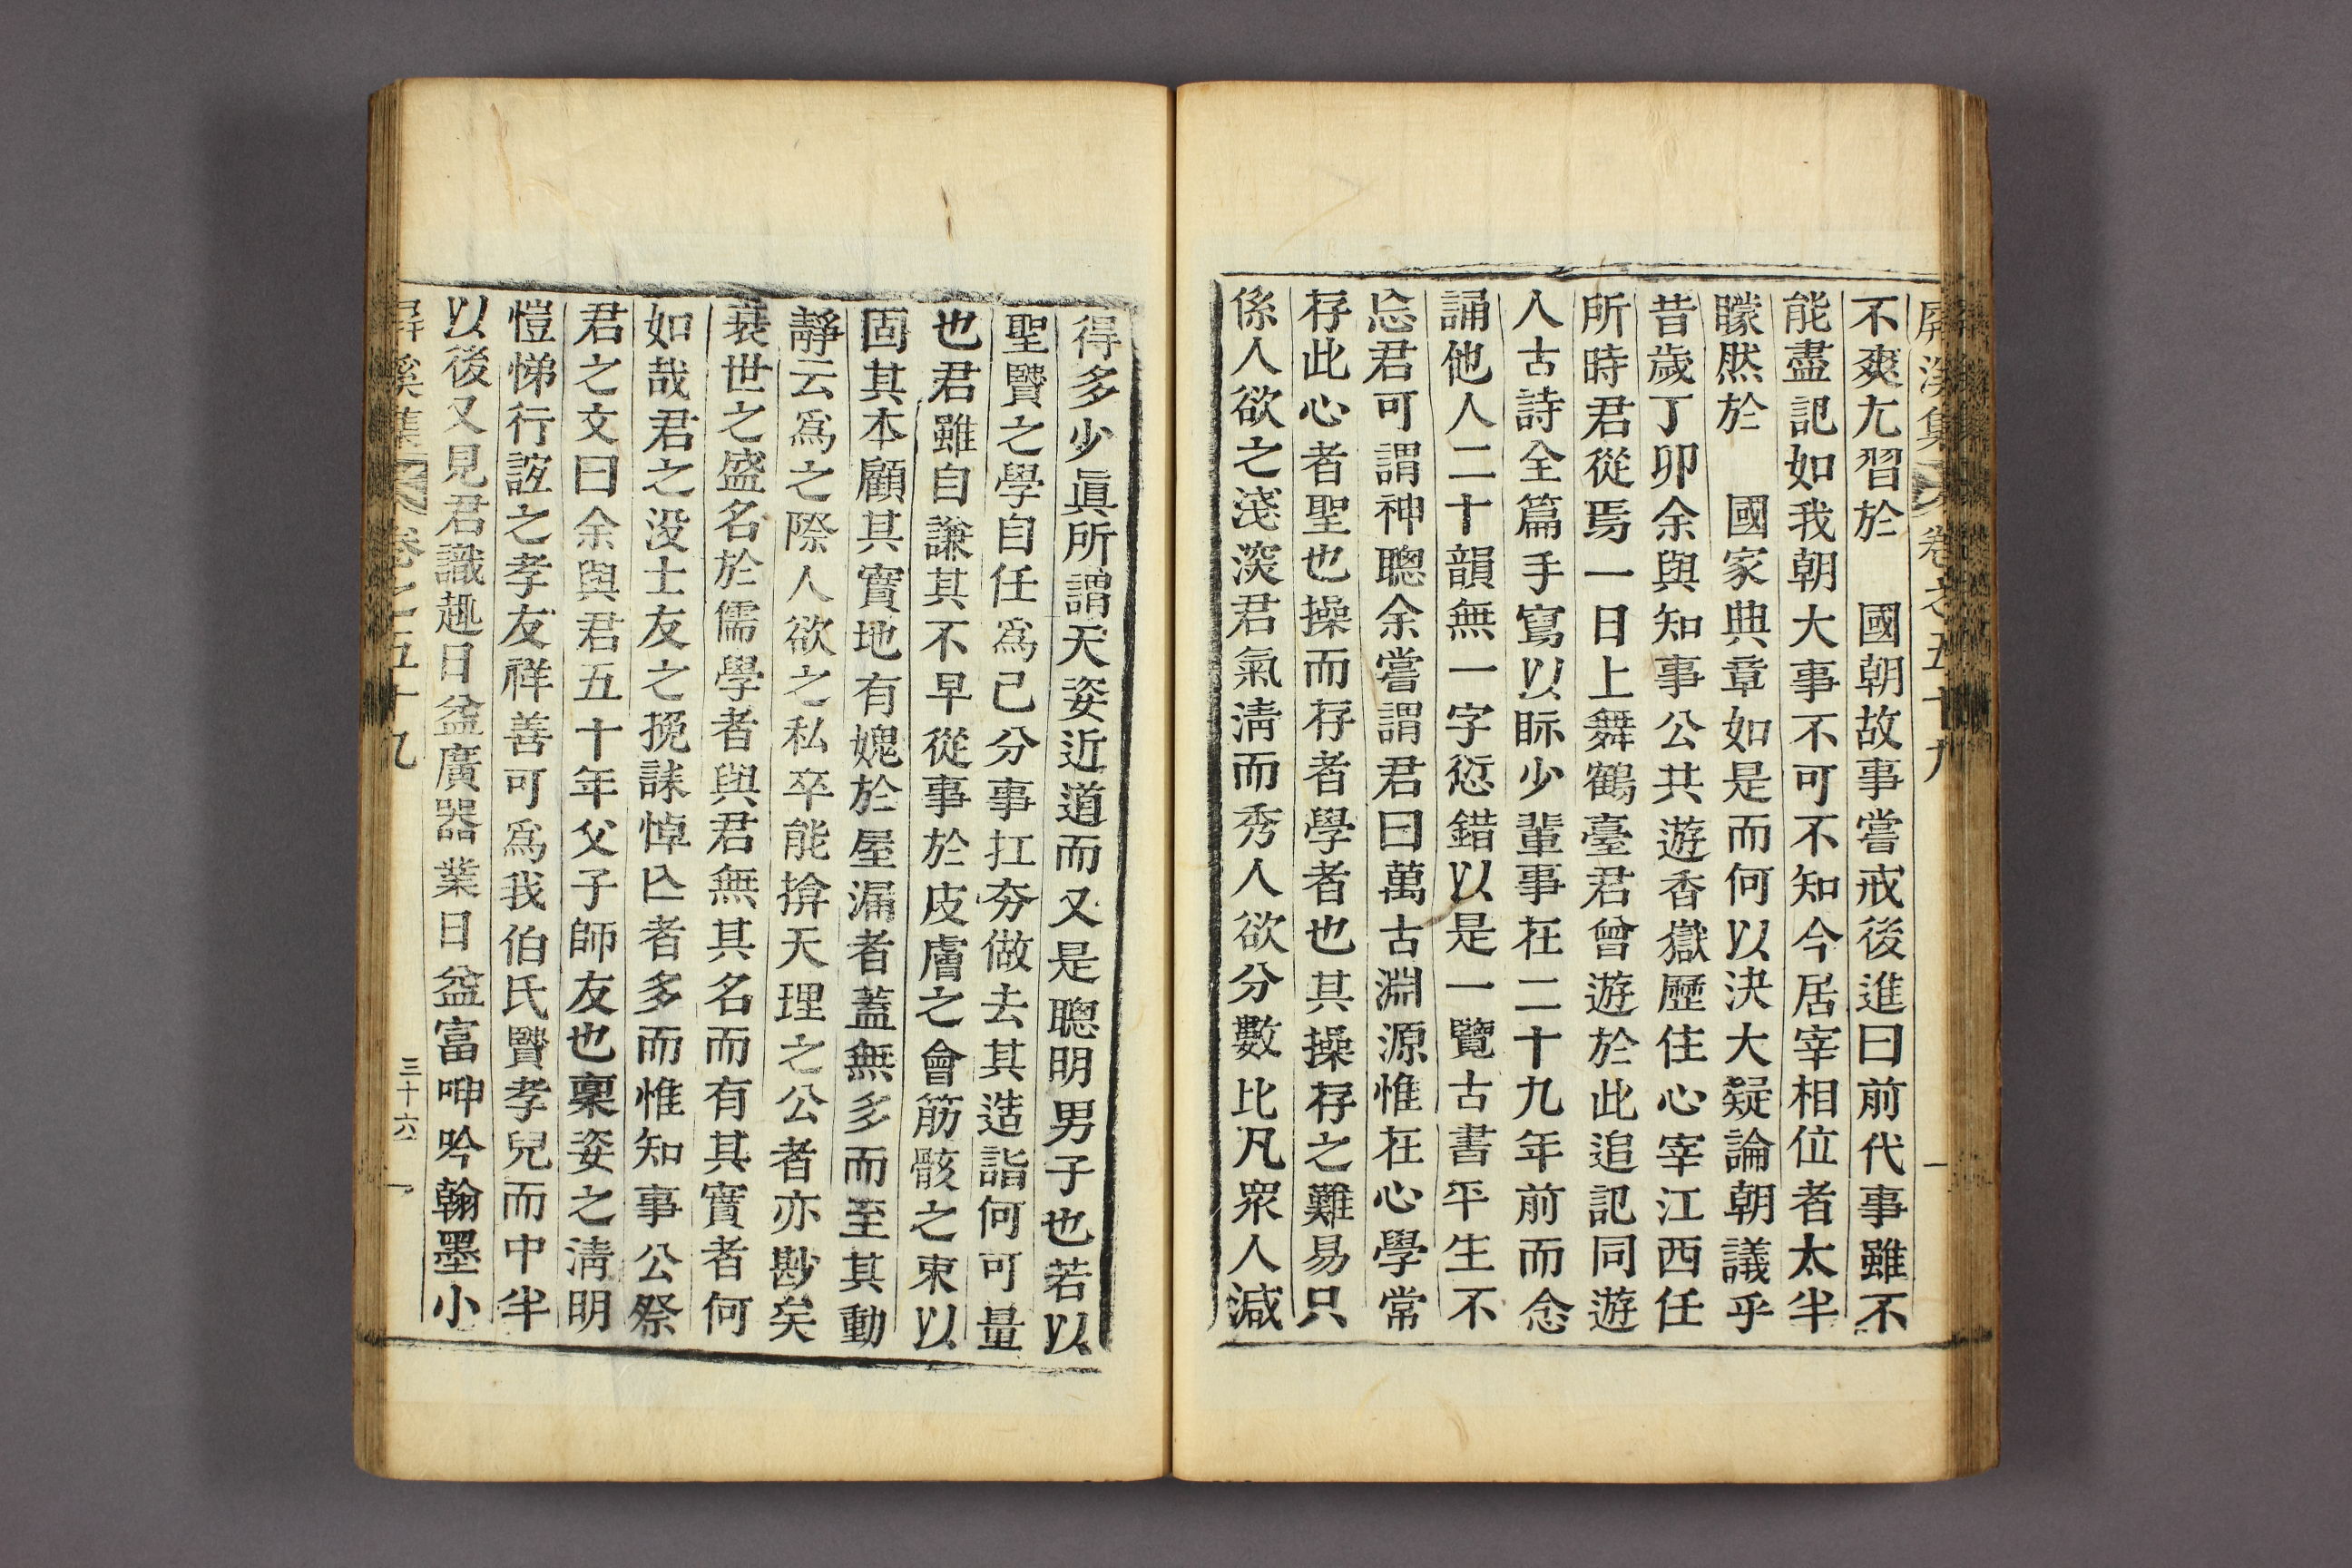 屛溪集 卷之五十九
不爽尤習於　國朝故事嘗戒後進曰前代事雖不
能盡記如我朝大事不可不知今居宰相位者太半
矇然於　國家典章如是而何以決大疑論朝議乎
昔歲丁卯余與知事公共遊香嶽歷住心宰江西任
所時君從焉一日上舞鶴臺君曾遊於此追記同遊
人古詩全篇手寫以眎少輩事在二十九年前而念
誦他人二十韻無一字愆錯以是一覽古書平生不
忘君可謂神聰余嘗謂君曰萬古淵源惟在心學常
存此心者聖也操而存者學者也其操存之難易只
係人欲之淺深君氣淸而秀人欲分數比凡衆人減
得多少眞所謂天姿近道而又是聰明男子也若以
聖贒之學自任爲己分事扛夯做去其造詣何可量
也君雖自謙其不早從事於皮膚之會筋骸之束以
固其本顧其實地有媿於屋漏者蓋無多而至其動
靜云爲之際人欲之私卒能揜天理之公者亦尠矣
衰世之盛名於儒學者與君無其名而有其實者何
如哉君之没士友之挽誄悼亾者多而惟知事公祭
君之文曰余與君五十年父子師友也稟姿之淸明
愷悌行誼之孝友祥善可爲我伯氏贒孝兒而中半
以後又見君識趣日益廣器業日益富呻吟翰墨小
屛溪集 卷之五十九 三十六